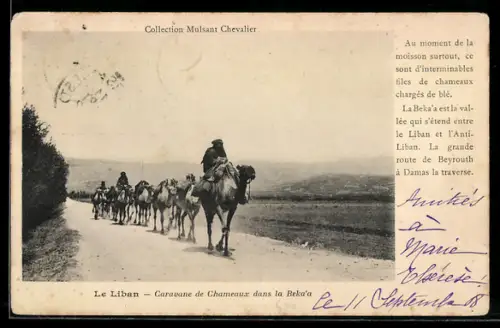 Collection Mulsant Chevalier
Au moment de la
moisson surtout, ce
sont d'interminables
files de chameaux
chargés de blé.
La Beka'a est la val-
lée qui s'étend entre
le Liban et l'Anti-
Liban. La grande
route de Beyrouth
à Damas la traverse.
Amitiés
à
Marie
Thérèse!
Le Liban — Caravane de Chameaux dans la Beka'a
Ce 11 Septembre 08